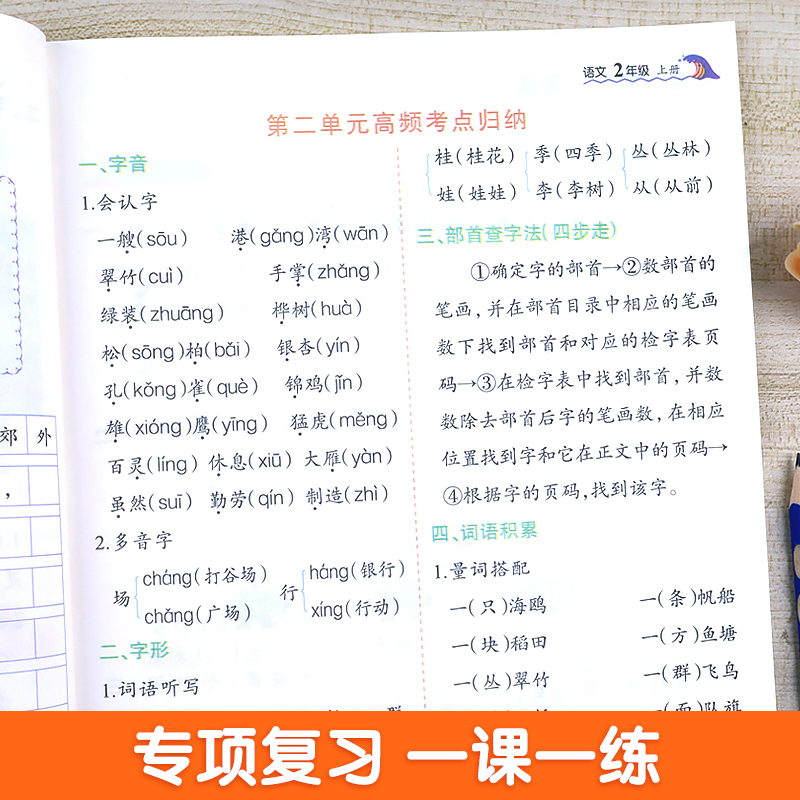 语文 2年级 上册
第二单元高频考点归纳
一、字音
1.会认字
一艘(sōu) 港(gǎng)湾(wān)
翠竹(cuì) 手掌(zhǎng)
绿装(zhuāng) 桦树(huà)
松(sōng)柏(bǎi) 银杏(yín)
孔(kǒng)雀(què) 锦鸡(jǐn)
雄(xióng)鹰(yīng) 猛虎(měng)
百灵(líng) 休息(xiū) 大雁(yàn)
虽然(suī) 勤劳(qín) 制造(zhì)
2.多音字
场 cháng(打谷场) chǎng(广场)
行 háng(银行) xíng(行动)
二、字形
1.词语听写
桂(桂花) 季(四季) 丛(丛林)
娃(娃娃) 李(李树) 从(从前)
三、部首查字法(四步走)
①确定字的部首→②数部首的
笔画,并在部首目录中相应的笔画
数下找到部首和对应的检字表页
码→③在检字表中找到部首,并数
数除去部首后字的笔画数,在相应
位置找到字和它在正文中的页码→
④根据字的页码,找到该字。
四、词语积累
1.量词搭配
一(只)海鸥 一(条)帆船
一(块)稻田 一(方)鱼塘
一(丛)翠竹 一(群)飞鸟
一(面)队旗
郊 外
,
专项复习 一课一练